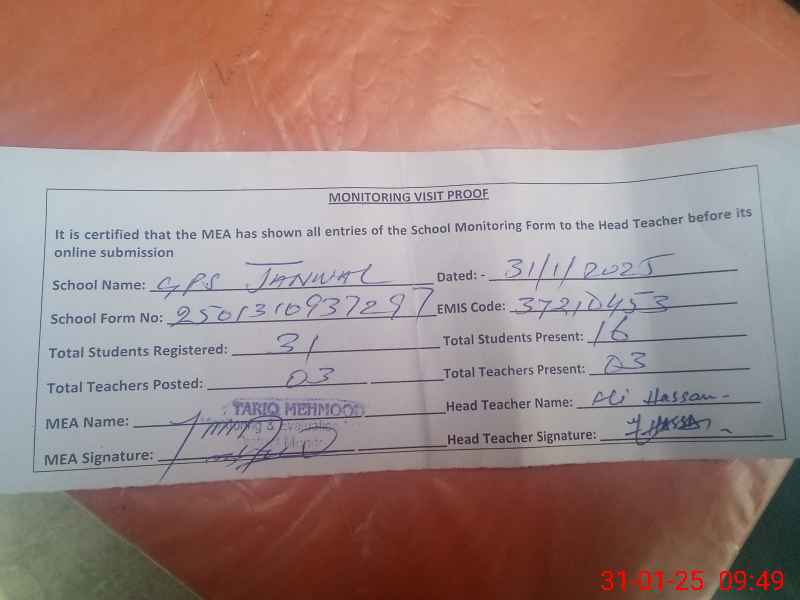 MONITORING VISIT PROOF
It is certified that the MEA has shown all entries of the School Monitoring Form to the Head Teacher before its
online submission
School Name: GPS JANWAL Dated: - 31/1/2025
School Form No: 250131093 7297 EMIS Code: 37210453
Total Students Registered: 31 Total Students Present: 16
Total Teachers Posted: 03 Total Teachers Present: 03
MEA Name: TARIQ MEHMOOD Head Teacher Name: Ali Hassan
Monitoring & Evaluation
MEA Signature: Head Teacher Signature: HASSAN
31-01-25 09:49